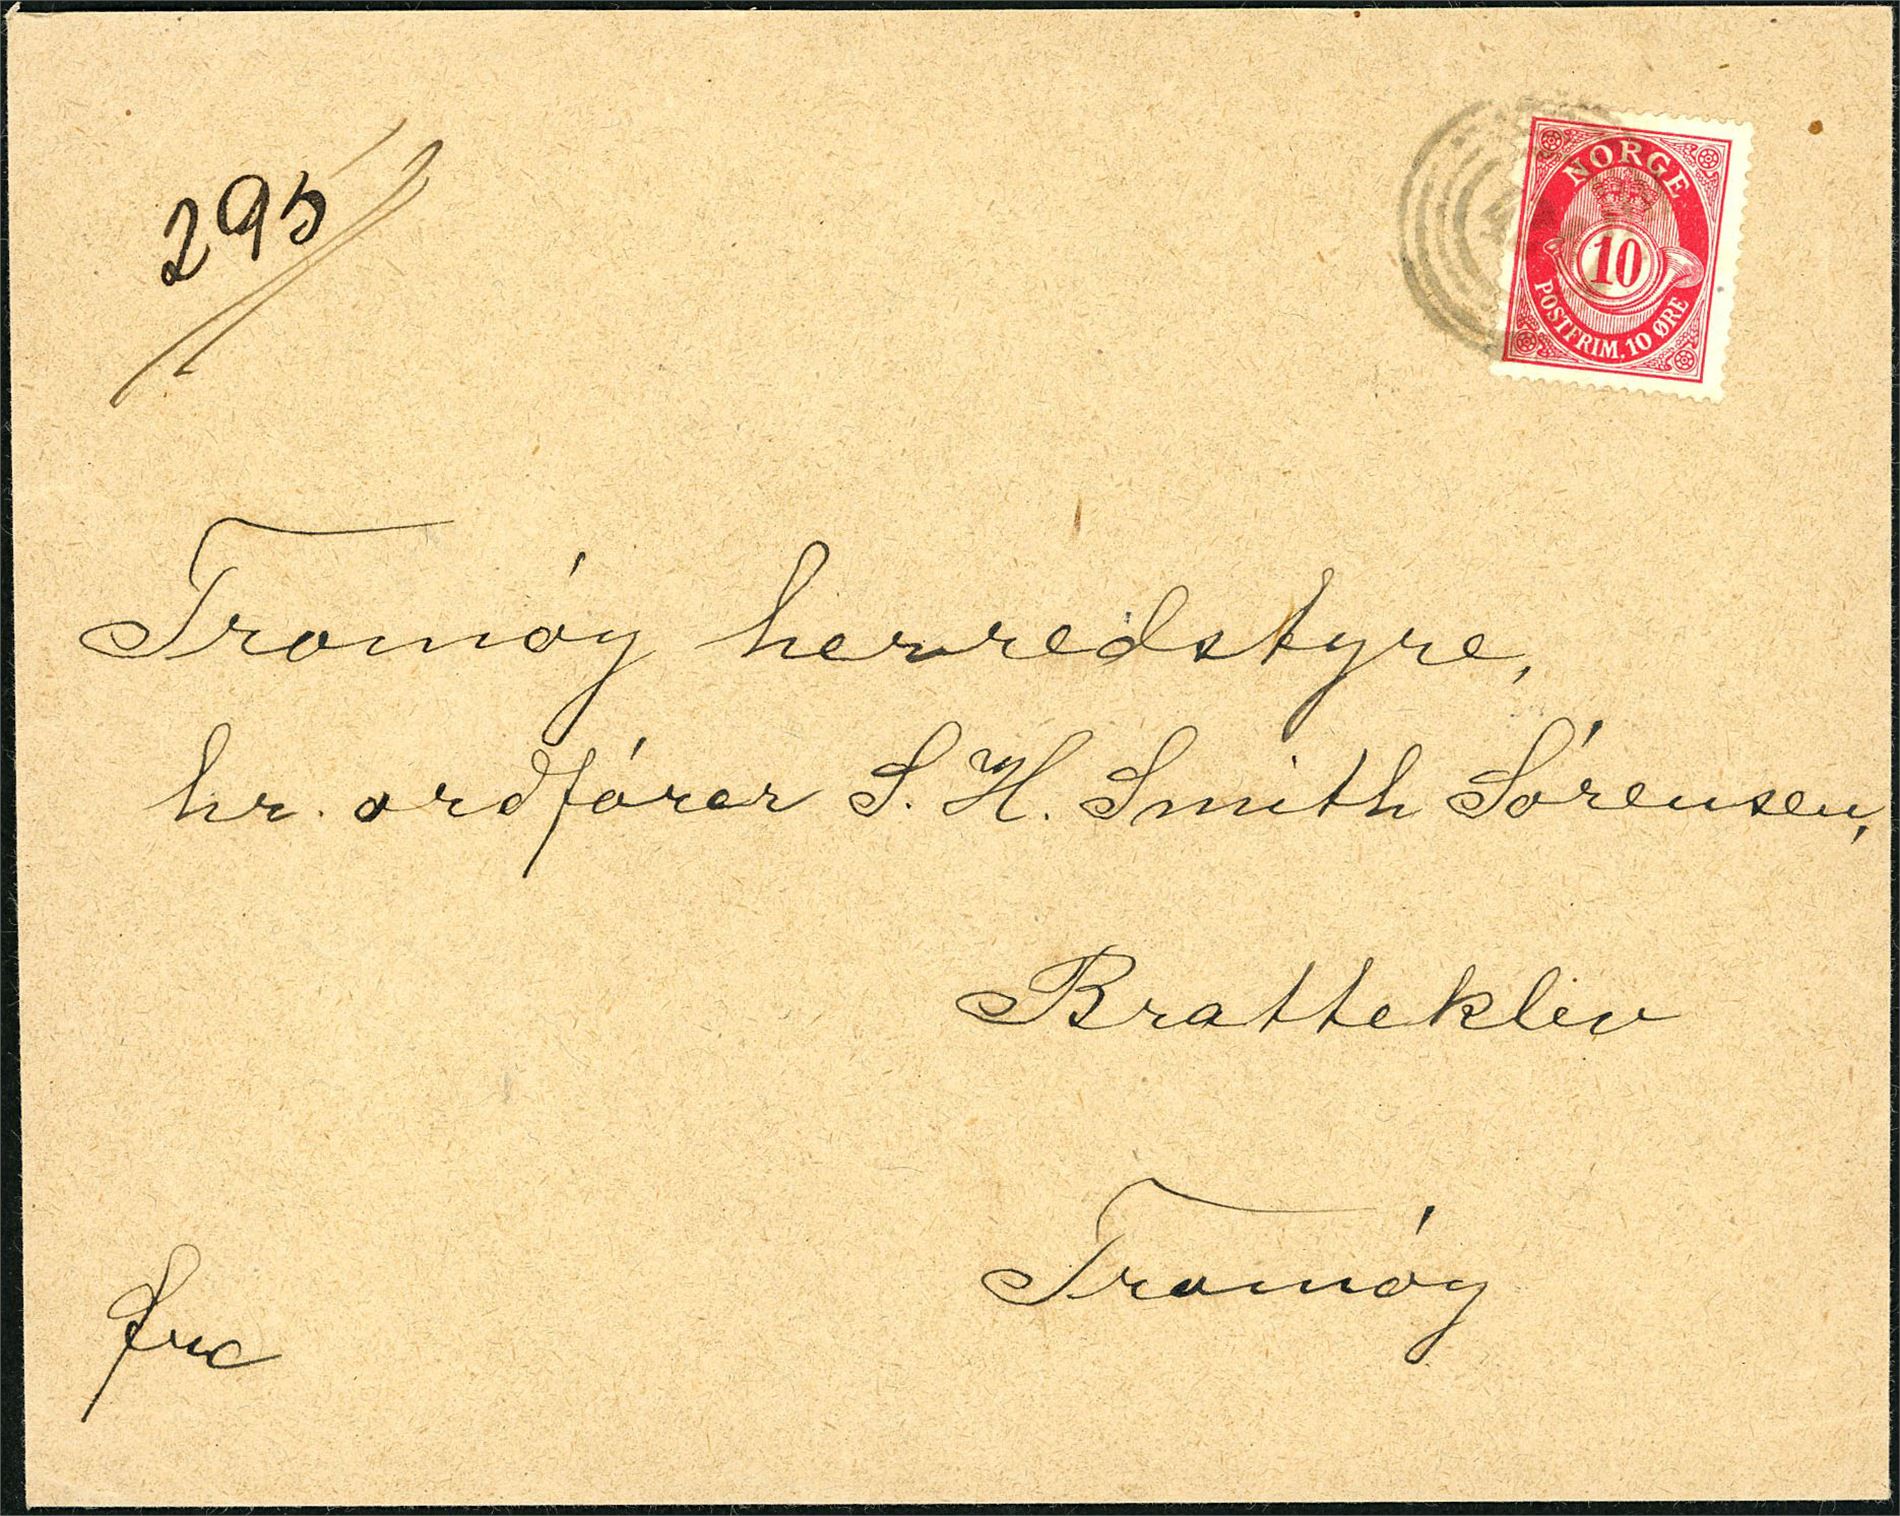 295
NORGE
10
POSTFRIM. 10 ØRE
Tromóy herredstyre,
hr. ordfórer S. H. Smith Sórensen,
Bratteklev
Tromóy
frc